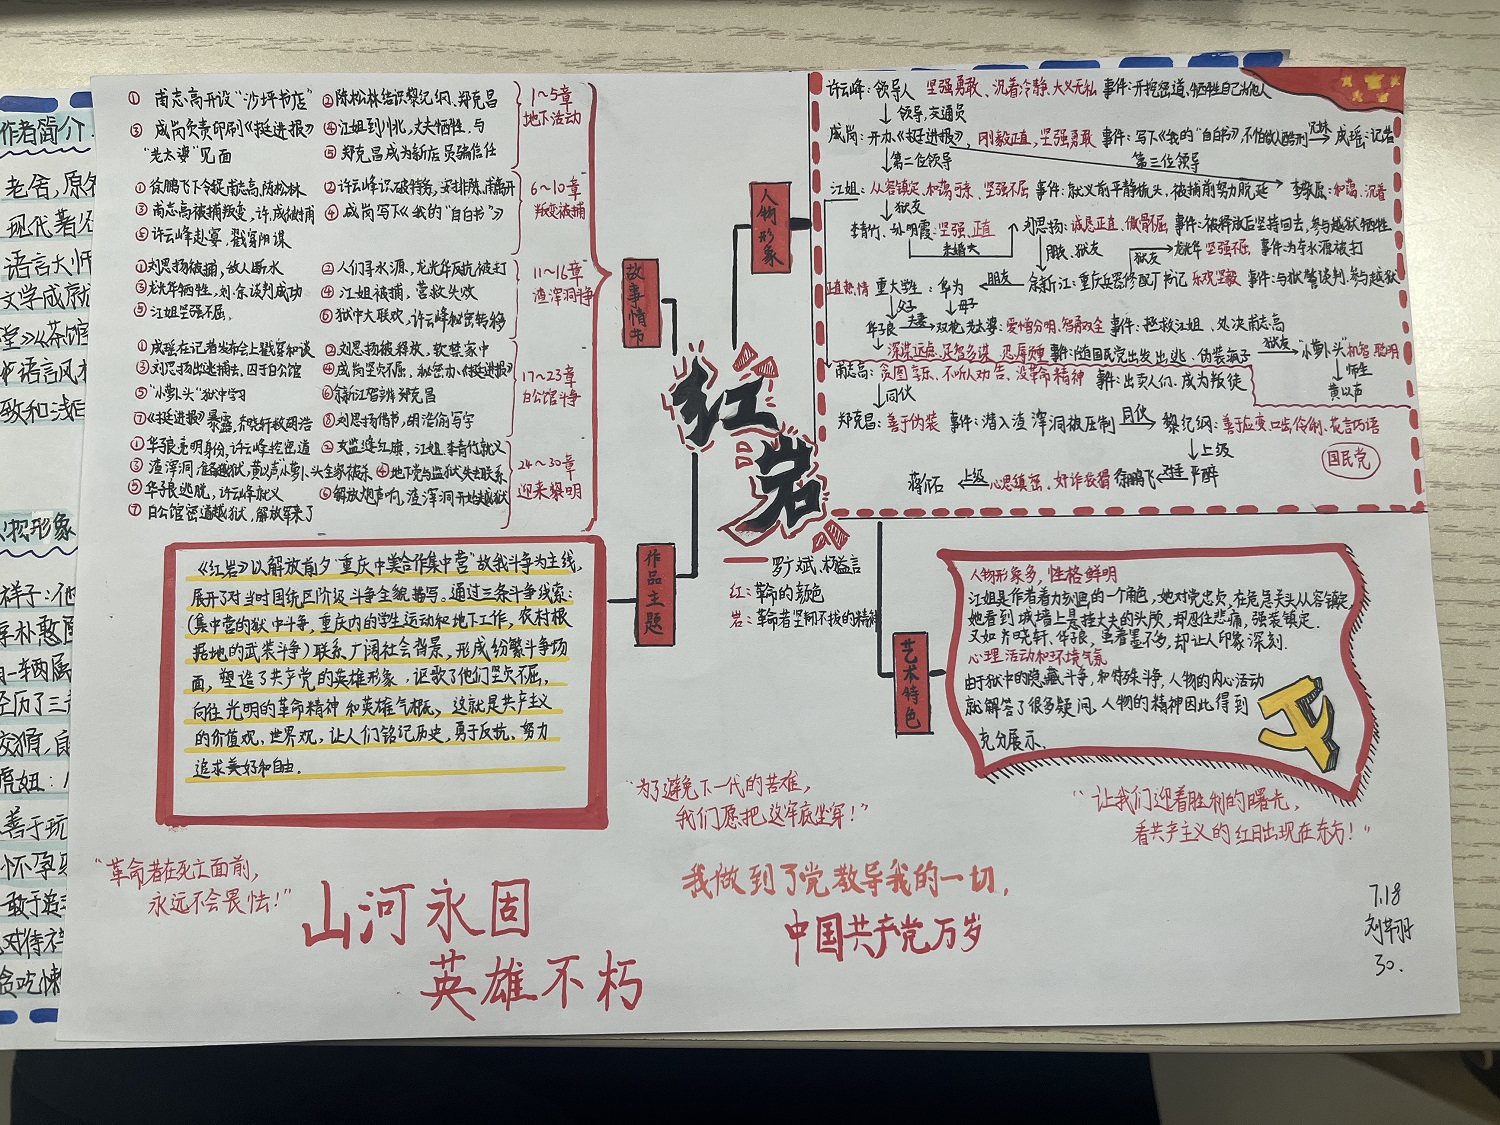 ① 甫志高开设“沙坪书店”
② 陈松林结识黎纪纲、郑克昌
③ 成岗负责印刷《挺进报》
④ 江姐到川北,丈夫牺牲,与
“老太婆”见面
⑤ 郑克昌成为新店员骗信任
1~5章
地下活动
① 徐鹏飞下令捉甫志高,陈松林
② 许云峰识破特务,安排陈、甫离开
③ 甫志高被捕叛变,许、成被捕
④ 成岗写下《我的“自白书”》
⑤ 许云峰赴宴,戳穿阴谋
6~10章
叛变被捕
① 刘思扬被捕,敌人断水
② 人们寻水源,龙光华反抗被打
③ 龙光华牺牲,刘、余谈判成功
④ 江姐被捕,营救失败
⑤ 江姐坚强不屈.
⑥ 狱中大联欢,许云峰秘密转移
11~16章
渣滓洞斗争
① 成瑶在记者发布会上戳穿和谈
② 刘思扬被释放,软禁家中
③ 刘思扬出逃捕去,囚于白公馆
④ 成岗坚贞不屈,秘密办《挺进报》
⑤ “小萝卜头”狱中学习
⑥ 余新江智辨郑克昌
⑦《挺进报》暴露,齐晓轩救胡浩
⑧ 刘思扬借书,胡浩偷写字
17~23章
白公馆斗争
① 华子良亮明身份,许云峰挖密道
② 女监绣红旗,江姐、李青竹就义
③ 渣滓洞准备越狱,黄以声“小萝卜头全家被杀
④ 地下党与监狱失去联系
⑤ 华子良逃脱,许云峰就义
⑥ 解放炮声响,渣滓洞开始越狱
⑦ 白公馆密道越狱,解放军来了
24~30章
迎来黎明
故事情节
人物形象
作品主题
艺术特色
红岩
—— 罗广斌、杨益言
红:革命的颜色
岩:革命者坚韧不拔的精神
许云峰:领导人 坚强勇敢、沉着冷静、大义无私 事件:开挖密道,牺牲自己、出他人
领导,交通员
成岗:开办《挺进报》,刚毅正直,坚强勇敢 事件:写下《我的“自白书”》,不怕敌人酷刑
兄妹
成瑶:记者
第二位领导
第三位领导
江姐:从容镇定,和蔼可亲、坚强不屈 事件:就义前平静梳头,被捕前努力脱延
李敬原:和蔼、沉着
狱友
李青竹、孙明霞:坚强、正直
未婚夫
刘思扬:诚恳正直,傲骨不屈 事件:被释放后坚持回去,参与越狱牺牲
朋友、狱友
狱友
龙光华 坚强不屈 事件:为夺水源被打
正直热情 重大学生:华为
朋友
余新江:重庆兵器修配厂书记 乐观坚毅 事件:与狱警谈判,参与越狱
父子
母子
华子良 夫妻 双枪老太婆:爱憎分明、智勇双全 事件:拯救江姐、处决甫志高
深谋远虑、足智多谋、忍辱负重 事件:随国民党出发出逃,伪装疯子
狱友
“小萝卜头”机智聪明
师生
黄以声
甫志高:贪图享乐、不听人劝告、没革命精神 事件:出卖人们,成为叛徒
同伙
郑克昌:善于伪装 事件:潜入渣滓洞被压制
同伙
黎纪纲:善于应变,口齿伶俐、花言巧语
上级
国民党
蒋介石 上级 心思缜密、奸诈狡猾 徐鹏飞 严醉
《红岩》以解放前夕“重庆中美合作集中营”敌我斗争为主线,
展开了对当时国统区阶级斗争全貌描写。通过三条斗争线索:
(集中营的狱中斗争,重庆内的学生运动和地下工作,农村根
据地的武装斗争)联系广阔社会背景,形成纷繁斗争场
面,塑造了共产党的英雄形象,讴歌了他们坚贞不屈,
向往光明的革命精神和英雄气概,这就是共产主义
的价值观、世界观,让人们铭记历史,勇于反抗、努力
追求美好和自由.
人物形象多,性格鲜明
江姐是作者着力刻画的一个角色,她对党忠贞,在危急关头从容镇定,
她看到城墙上是挂丈夫的头颅,却忍住悲痛,强装镇定.
又如齐晓轩、华子良,虽着墨不多,却让人印象深刻.
心理活动和环境气氛
由于狱中的隐藏斗争,和特殊斗争,人物的内心活动
就解答了很多疑问,人物的精神因此得到
充分展示.
“为了避免下一代的苦难,
我们愿把这牢底坐穿!”
“让我们迎着胜利的曙光,
看共产主义的红日出现在东方!”
“革命者在死亡面前,
永远不会畏怯!”
山河永固
英雄不朽
我做到了党教导我的一切,
中国共产党万岁
7.18
30.
作者简介
老舍,原名
现代著名
语言大师
文学成就
堂》《茶馆